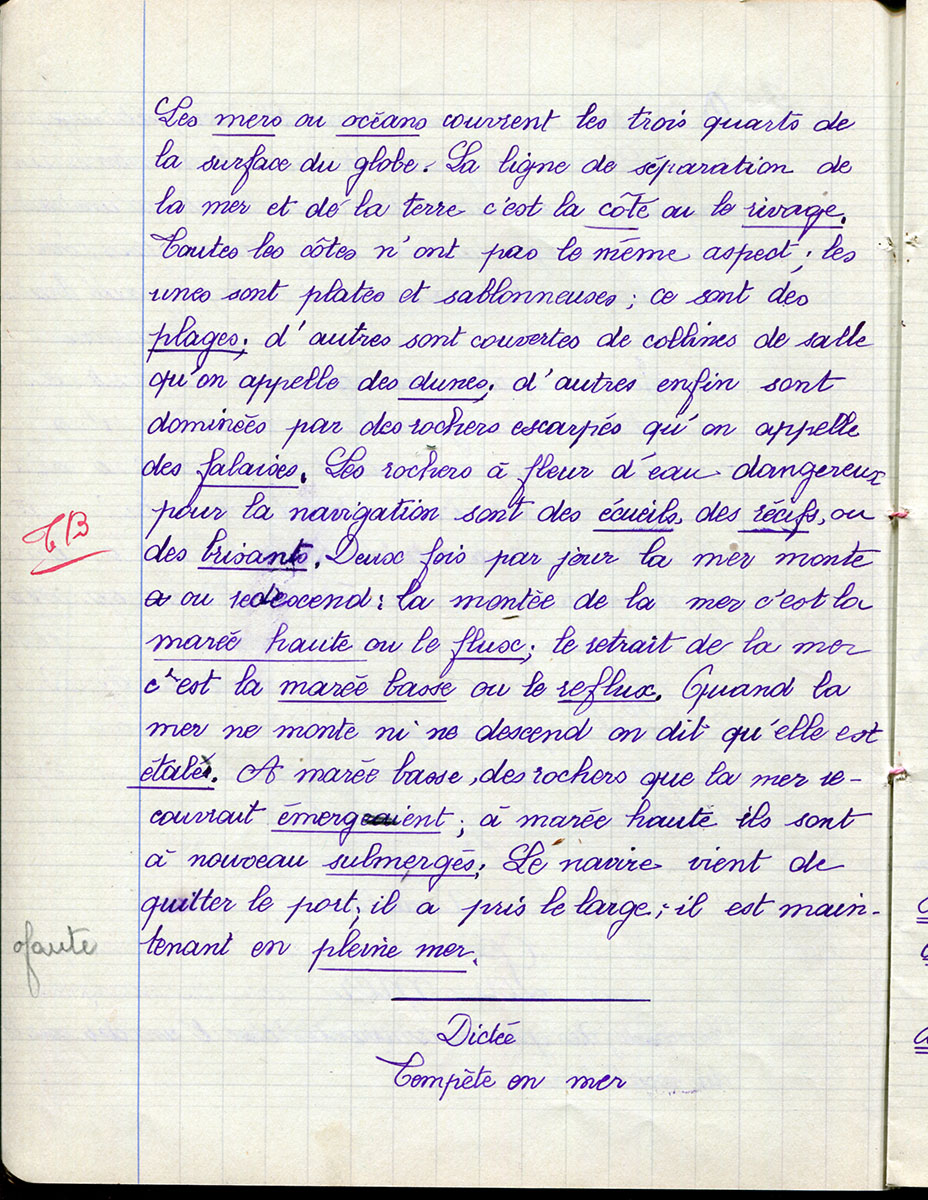 Les mers ou océans couvrent les trois quarts de
la surface du globe. La ligne de séparation de
la mer et de la terre c'est la côte ou le rivage.
Toutes les côtes n'ont pas le même aspect ; les
unes sont plates et sablonneuses ; ce sont des
plages ; d'autres sont couvertes de collines de salle
qu'on appelle des dunes, d'autres enfin sont
dominées par des rochers escarpés qu'on appelle
des falaises. Les rochers à fleur d'eau dangereux
pour la navigation sont des écueils, des récifs, ou
TB
des brisants. Deux fois par jour la mer monte
ou redescend : la montée de la mer c'est la
marée haute ou le flux ; le retrait de la mer
c'est la marée basse ou le reflux. Quand la
mer ne monte ni ne descend on dit qu'elle est
étale. A marée basse, des rochers que la mer re-
couvrait émergent ; à marée haute ils sont
à nouveau submergés ; Le navire vient de
quitter le port, il a pris le large ; il est main-
0 faute
tenant en pleine mer.
Dictée
Tempête en mer